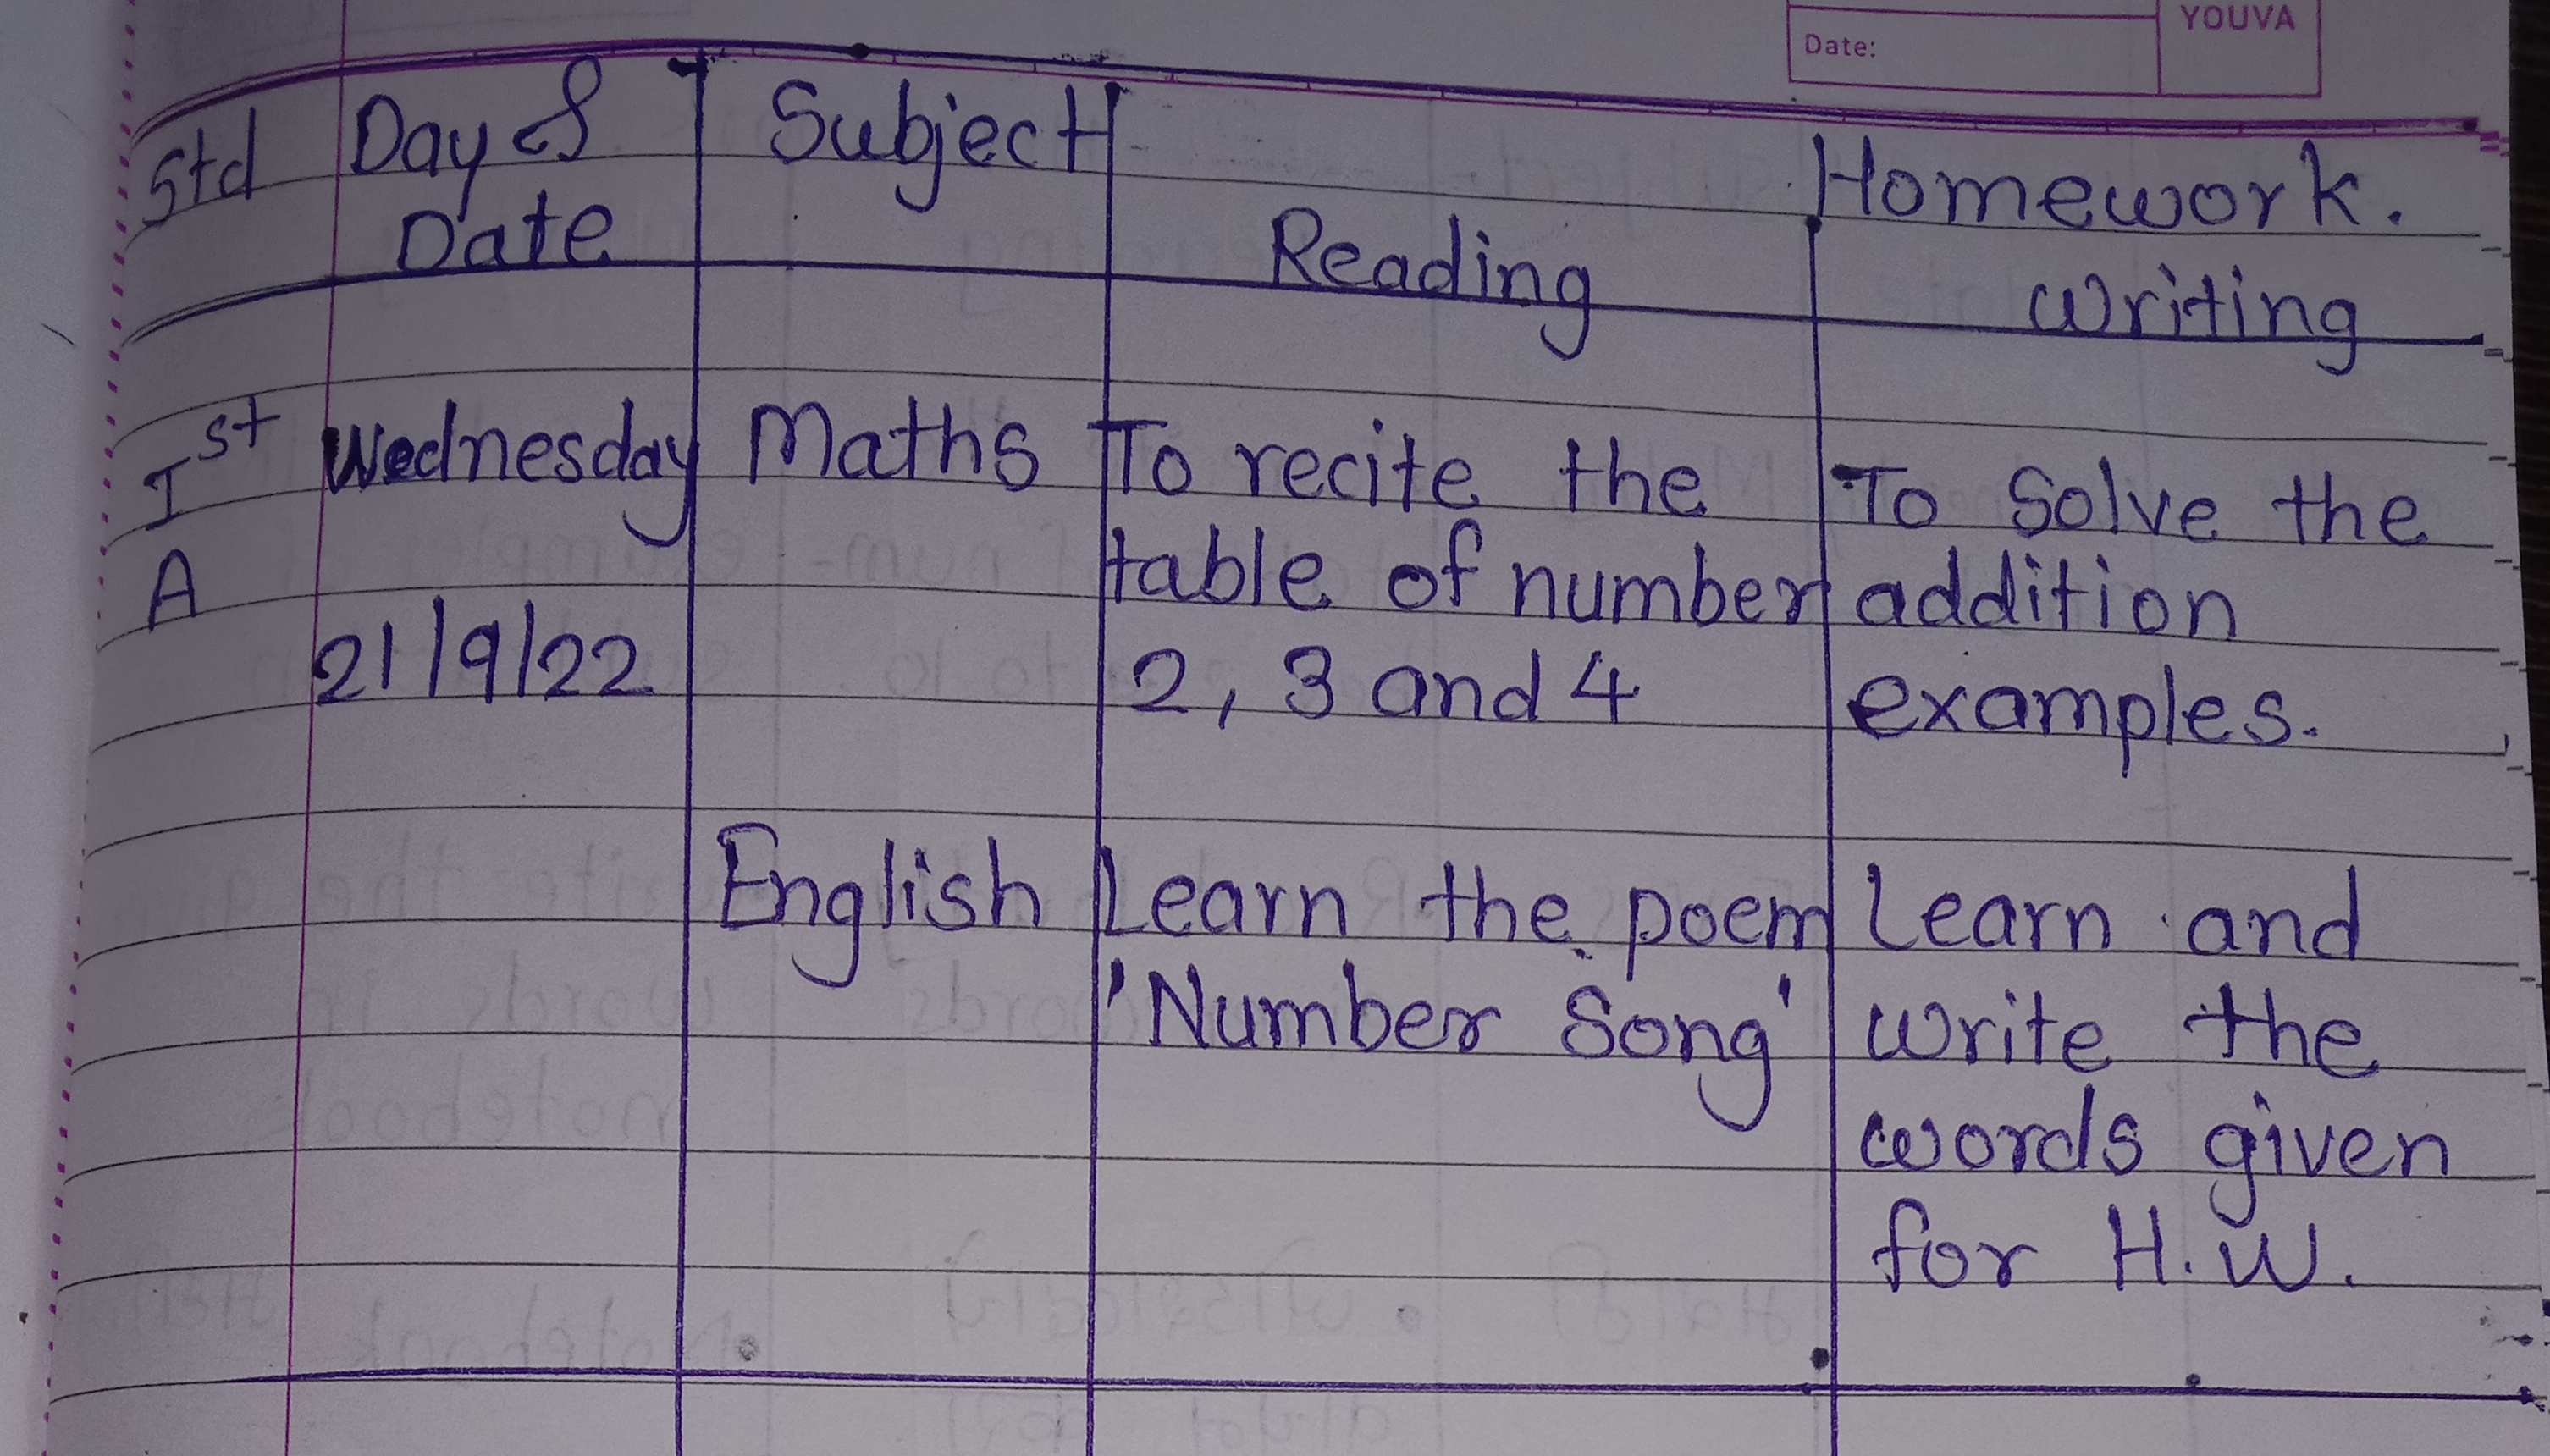 YOUVA
Date:
Std Day & Subject
Date
Homework.
Reading Writing
Ist Wednesday Maths To recite the To solve the
A table of number addition
21/9/22 2, 3 and 4 examples.
English Learn the poem Learn and
'Number Song' write the
words given
for H.W.